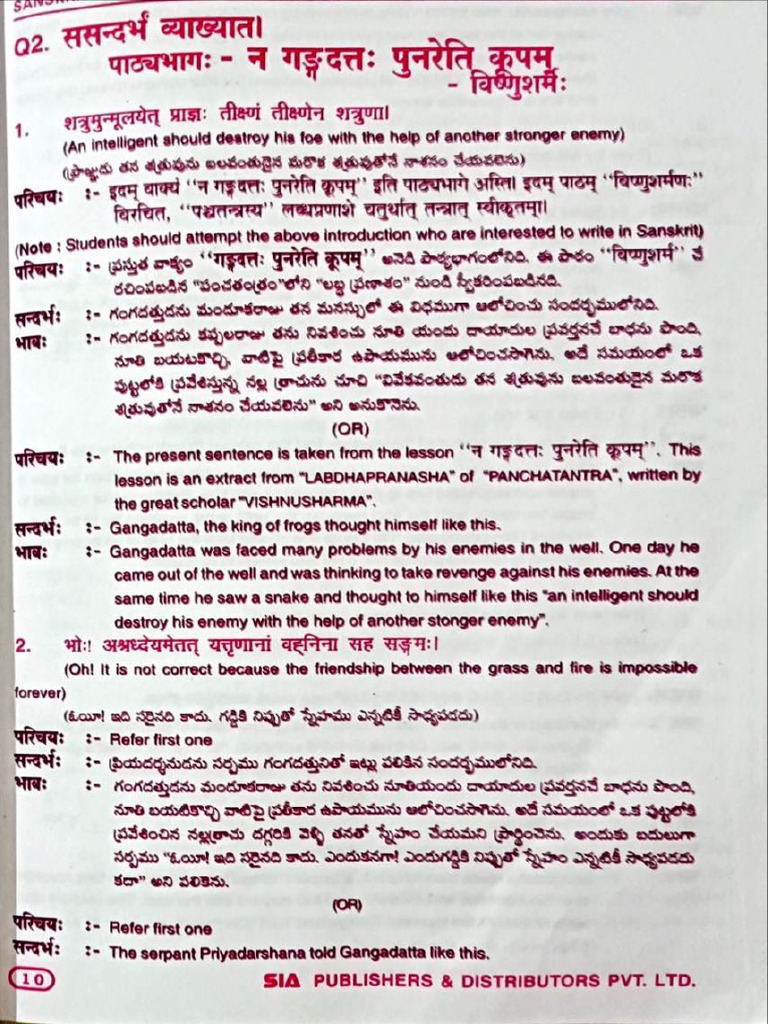 Q2. ससन्दर्भं व्याख्यात।
पाठ्यभागः - न गङ्गदत्तः पुनरेति कूपम्
- विष्णुशर्मः
1. शत्रुमुन्मूलयेत् प्राज्ञः तीक्ष्णं तीक्ष्णेन शत्रुणा।
(An intelligent should destroy his foe with the help of another stronger enemy)
(ప్రాజ్ఞుడు తన శత్రువును బలవంతుడైన మరొక శత్రువుతోనే నాశనం చేయవలెను)
परिचयः :- इदम् वाक्यं "न गङ्गदत्तः पुनरेति कूपम्" इति पाठ्यभागे अस्ति। इदम् पाठम् "विष्णुशर्मणः"
विरचित, "पञ्चतन्त्रस्य" लब्धप्रणाशे चतुर्थात् तन्त्रात् स्वीकृतम्।
(Note : Students should attempt the above introduction who are interested to write in Sanskrit)
परिचयः :- ప్రస్తుత వాక్యం "गङ्गदत्तः पुनरेति कूपम्" అనెడి పాఠ్యభాగంలోనిది. ఈ పాఠం "विष्णुशर्म" చే
రచింపబడిన "పంచతంత్రం"లోని "లబ్ధ ప్రణాశం" నుండి స్వీకరింపబడినది.
सन्दर्भः :- గంగదత్తుడను మండూకరాజు తన మనస్సులో ఈ విధముగా ఆలోచించు సందర్భములోనిది.
भावः :- గంగదత్తుడను కప్పలరాజు తను నివశించు నూతి యందు దాయాదుల ప్రవర్తనచే బాధను పొంది,
నూతి బయటకొచ్చి, వాటిపై ప్రతీకార ఉపాయమును ఆలోచించసాగెను. అదే సమయంలో ఒక
పుట్టలోకి ప్రవేశిస్తున్న నల్ల త్రాచును చూచి "వివేకవంతుడు తన శత్రువును బలవంతుడైన మరొక
శత్రువుతోనే నాశనం చేయవలెను" అని అనుకొనెను.
(OR)
परिचयः :- The present sentence is taken from the lesson "न गङ्गदत्तः पुनरेति कूपम्". This
lesson is an extract from "LABDHAPRANASHA" of "PANCHATANTRA", written by
the great scholar "VISHNUSHARMA".
सन्दर्भः :- Gangadatta, the king of frogs thought himself like this.
भावः :- Gangadatta was faced many problems by his enemies in the well. One day he
came out of the well and was thinking to take revenge against his enemies. At the
same time he saw a snake and thought to himself like this "an intelligent should
destroy his enemy with the help of another stonger enemy".
2. भोः! अश्रध्देयमेतत् यत्तृणानां वह्निना सह सङ्गमः।
(Oh! It is not correct because the friendship between the grass and fire is impossible
forever)
(ఓయీ! ఇది సరైనది కాదు. గడ్డికి నిప్పుతో స్నేహము ఎన్నటికీ సాధ్యపడదు)
परिचयः :- Refer first one
सन्दर्भः :- ప్రియదర్శనుడను సర్పము గంగదత్తునితో ఇట్లు పలికిన సందర్భములోనిది.
भावः :- గంగదత్తుడను మండూకరాజు తను నివశించు నూతియందు దాయాదుల ప్రవర్తనచే బాధను పొంది,
నూతి బయటికొచ్చి వాటిపై ప్రతీకార ఉపాయమును ఆలోచించసాగెను. అదే సమయంలో ఒక పుట్టలోకి
ప్రవేశించిన నల్లత్రాచు దగ్గరికి వెళ్ళి తనతో స్నేహం చేయమని ప్రార్థించెను. అందుకు బదులుగా
సర్పము "ఓయీ! ఇది సరైనది కాదు. ఎందుకనగా! ఎండుగడ్డికి నిప్పుతో స్నేహం ఎన్నటికీ సాధ్యపడదు
కదా" అని పలికెను.
(OR)
परिचयः :- Refer first one
सन्दर्भः :- The serpant Priyadarshana told Gangadatta like this.
10 SIA PUBLISHERS & DISTRIBUTORS PVT. LTD.